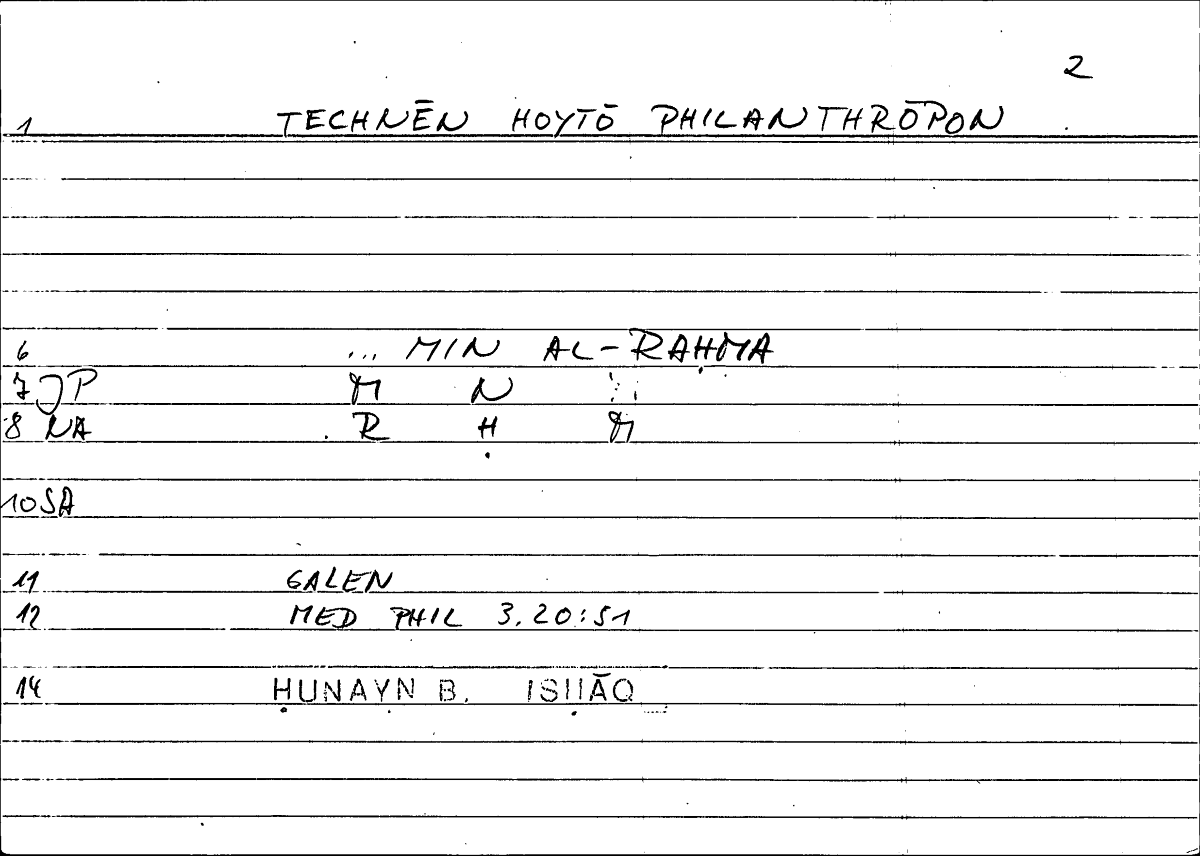 2
1 TECHNĒN HOYTŌ PHILANTHRŌPON
6 ... MIN AL-RAḤMA
7 JP M N
8 NA R Ḥ M
10 SA
11 GALEN
12 MED PHIL 3.20:51
14 ḤUNAYN B. ISḤĀQ